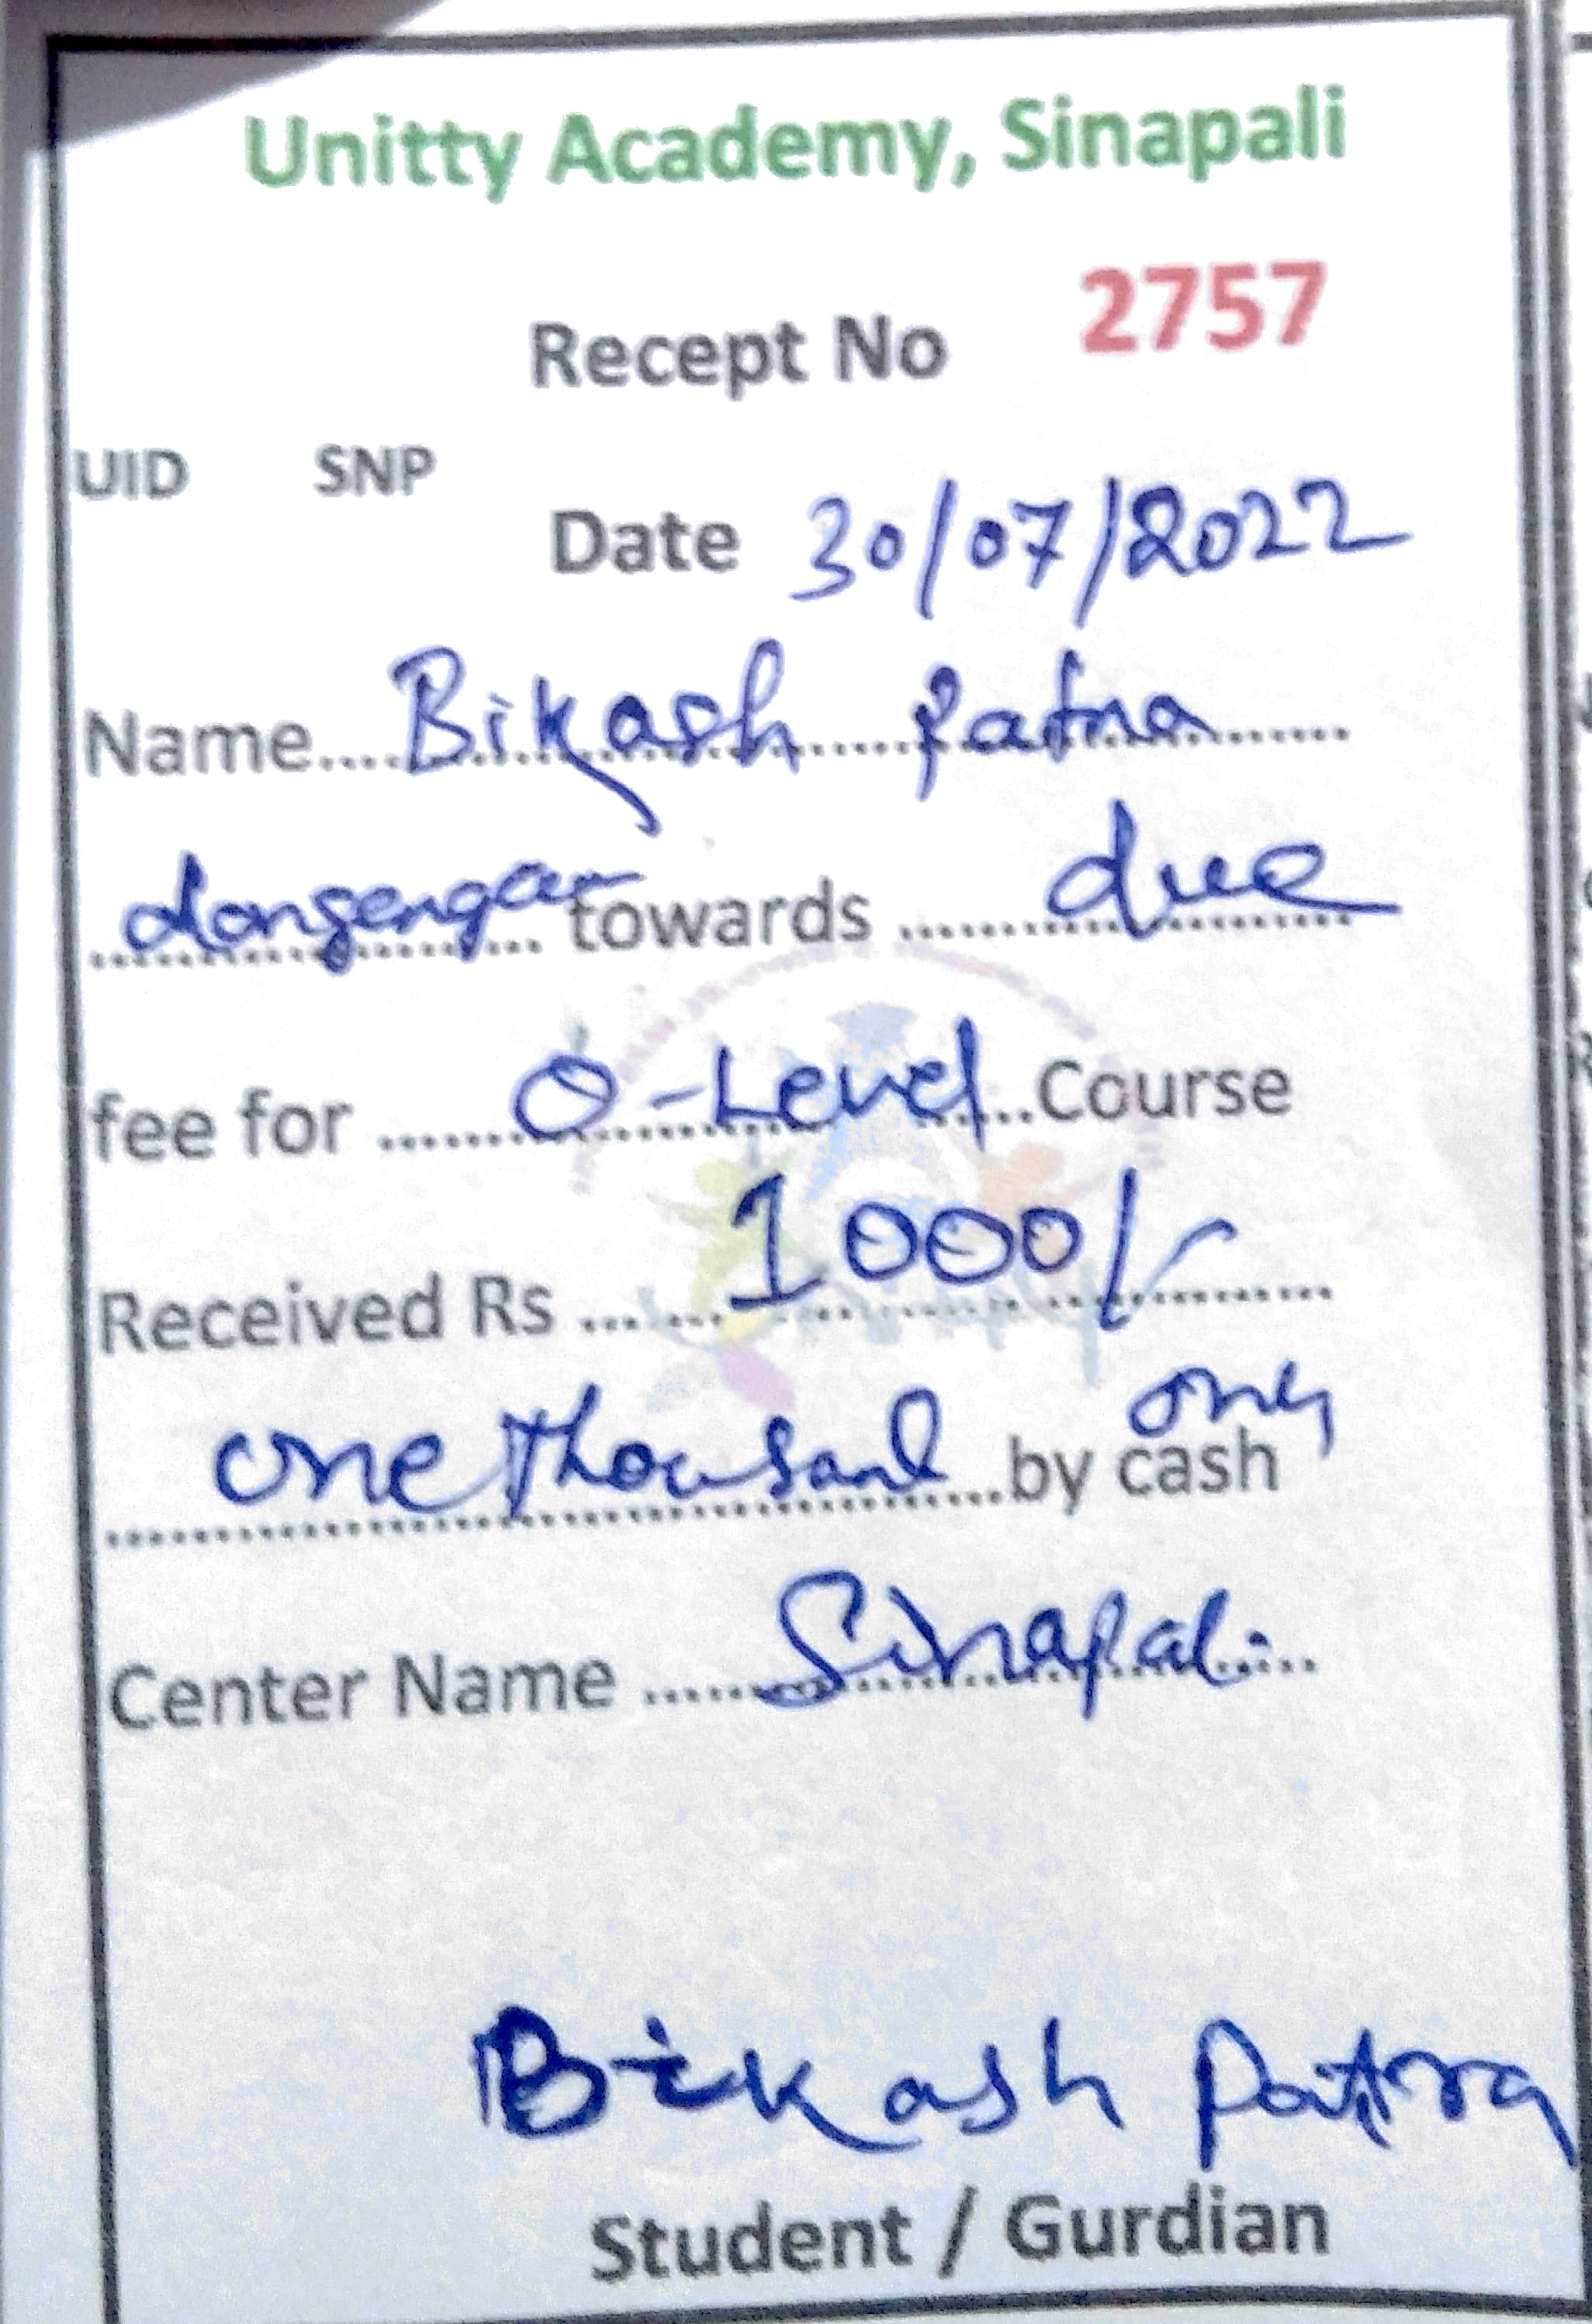 Unitty Academy, Sinapali
Recept No 2757
UID SNP
Date 30/07/2022
Name.... Bikash Patra
towards due
fee for O-Level Course
Received Rs 1000/-
one thousand only by cash
Center Name Sinapali
Bikash Patra
Student / Gurdian